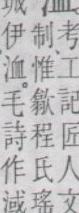 考工記匠人
制惟歙程氏瑤
城伊洫。毛詩作淢